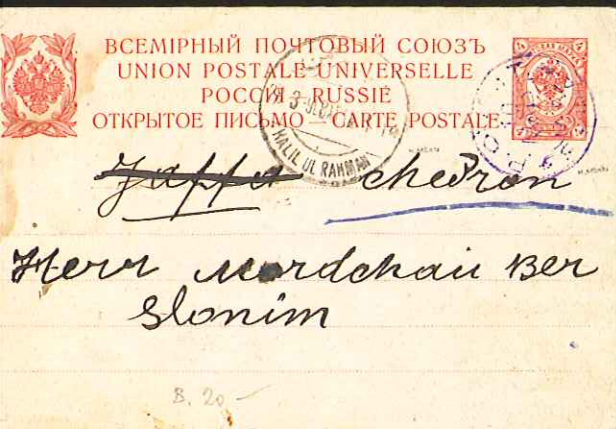 ВСЕМІРНЫЙ ПОЧТОВЫЙ СОЮЗЪ
UNION POSTALE UNIVERSELLE
РОССІЯ. RUSSIE
ОТКРЫТОЕ ПИСЬМО — CARTE POSTALE
HALIL UL RAHMAN
Jaffa chedron
Herr Mordchai Ber
Slonim
B. 20 —